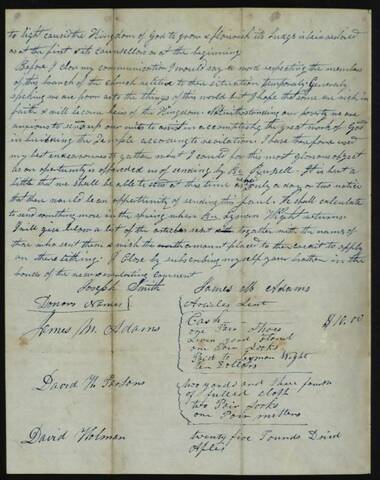 to light cause the Kingdom of God to grow & flourish its Judges be restored
as at the first its Counsellors as at the beginning
Before I close my communication I would say a word respecting the members
of this branch of the church relative to their situation temporally Generally
speaking we are poor as to the things of this world but I hope that some are rich in
faith & will become heirs of the Kingdom Notwithstanding our poverty we are
anxious to send up our mite to assist in accomplishing the great work of God
in building the Temple according to revelation I have therefore used
my best endeavours to gather what I could for this most glorious object
as an opportunity is afforded us of sending by Br Russell It is but a
little that we shall be able to send at this time as only a day or two notice
that there would be an opportunity of sending this fall We shall calculate
to send something more in the spring when Br Lyman Wight returns
I will give below a list of the articles sent together with the names of
those who sent them & wish the amount placed to their credit to apply
on their tithing I Close by subscribing myself your brother in the
bonds of the new & everlasting covenant
Joseph Smith James M Adams
Donors Names Articles Sent
James M. Adams Cash $10.00
one Pair Shoes
one Pair Socks
Paid to Lyman Wight
ten Dollars
David W Parsons two yards and three fourths
of fulled cloth
two Pair Socks
one Pair mittens
David Holman twenty five Pounds Dried
Aples